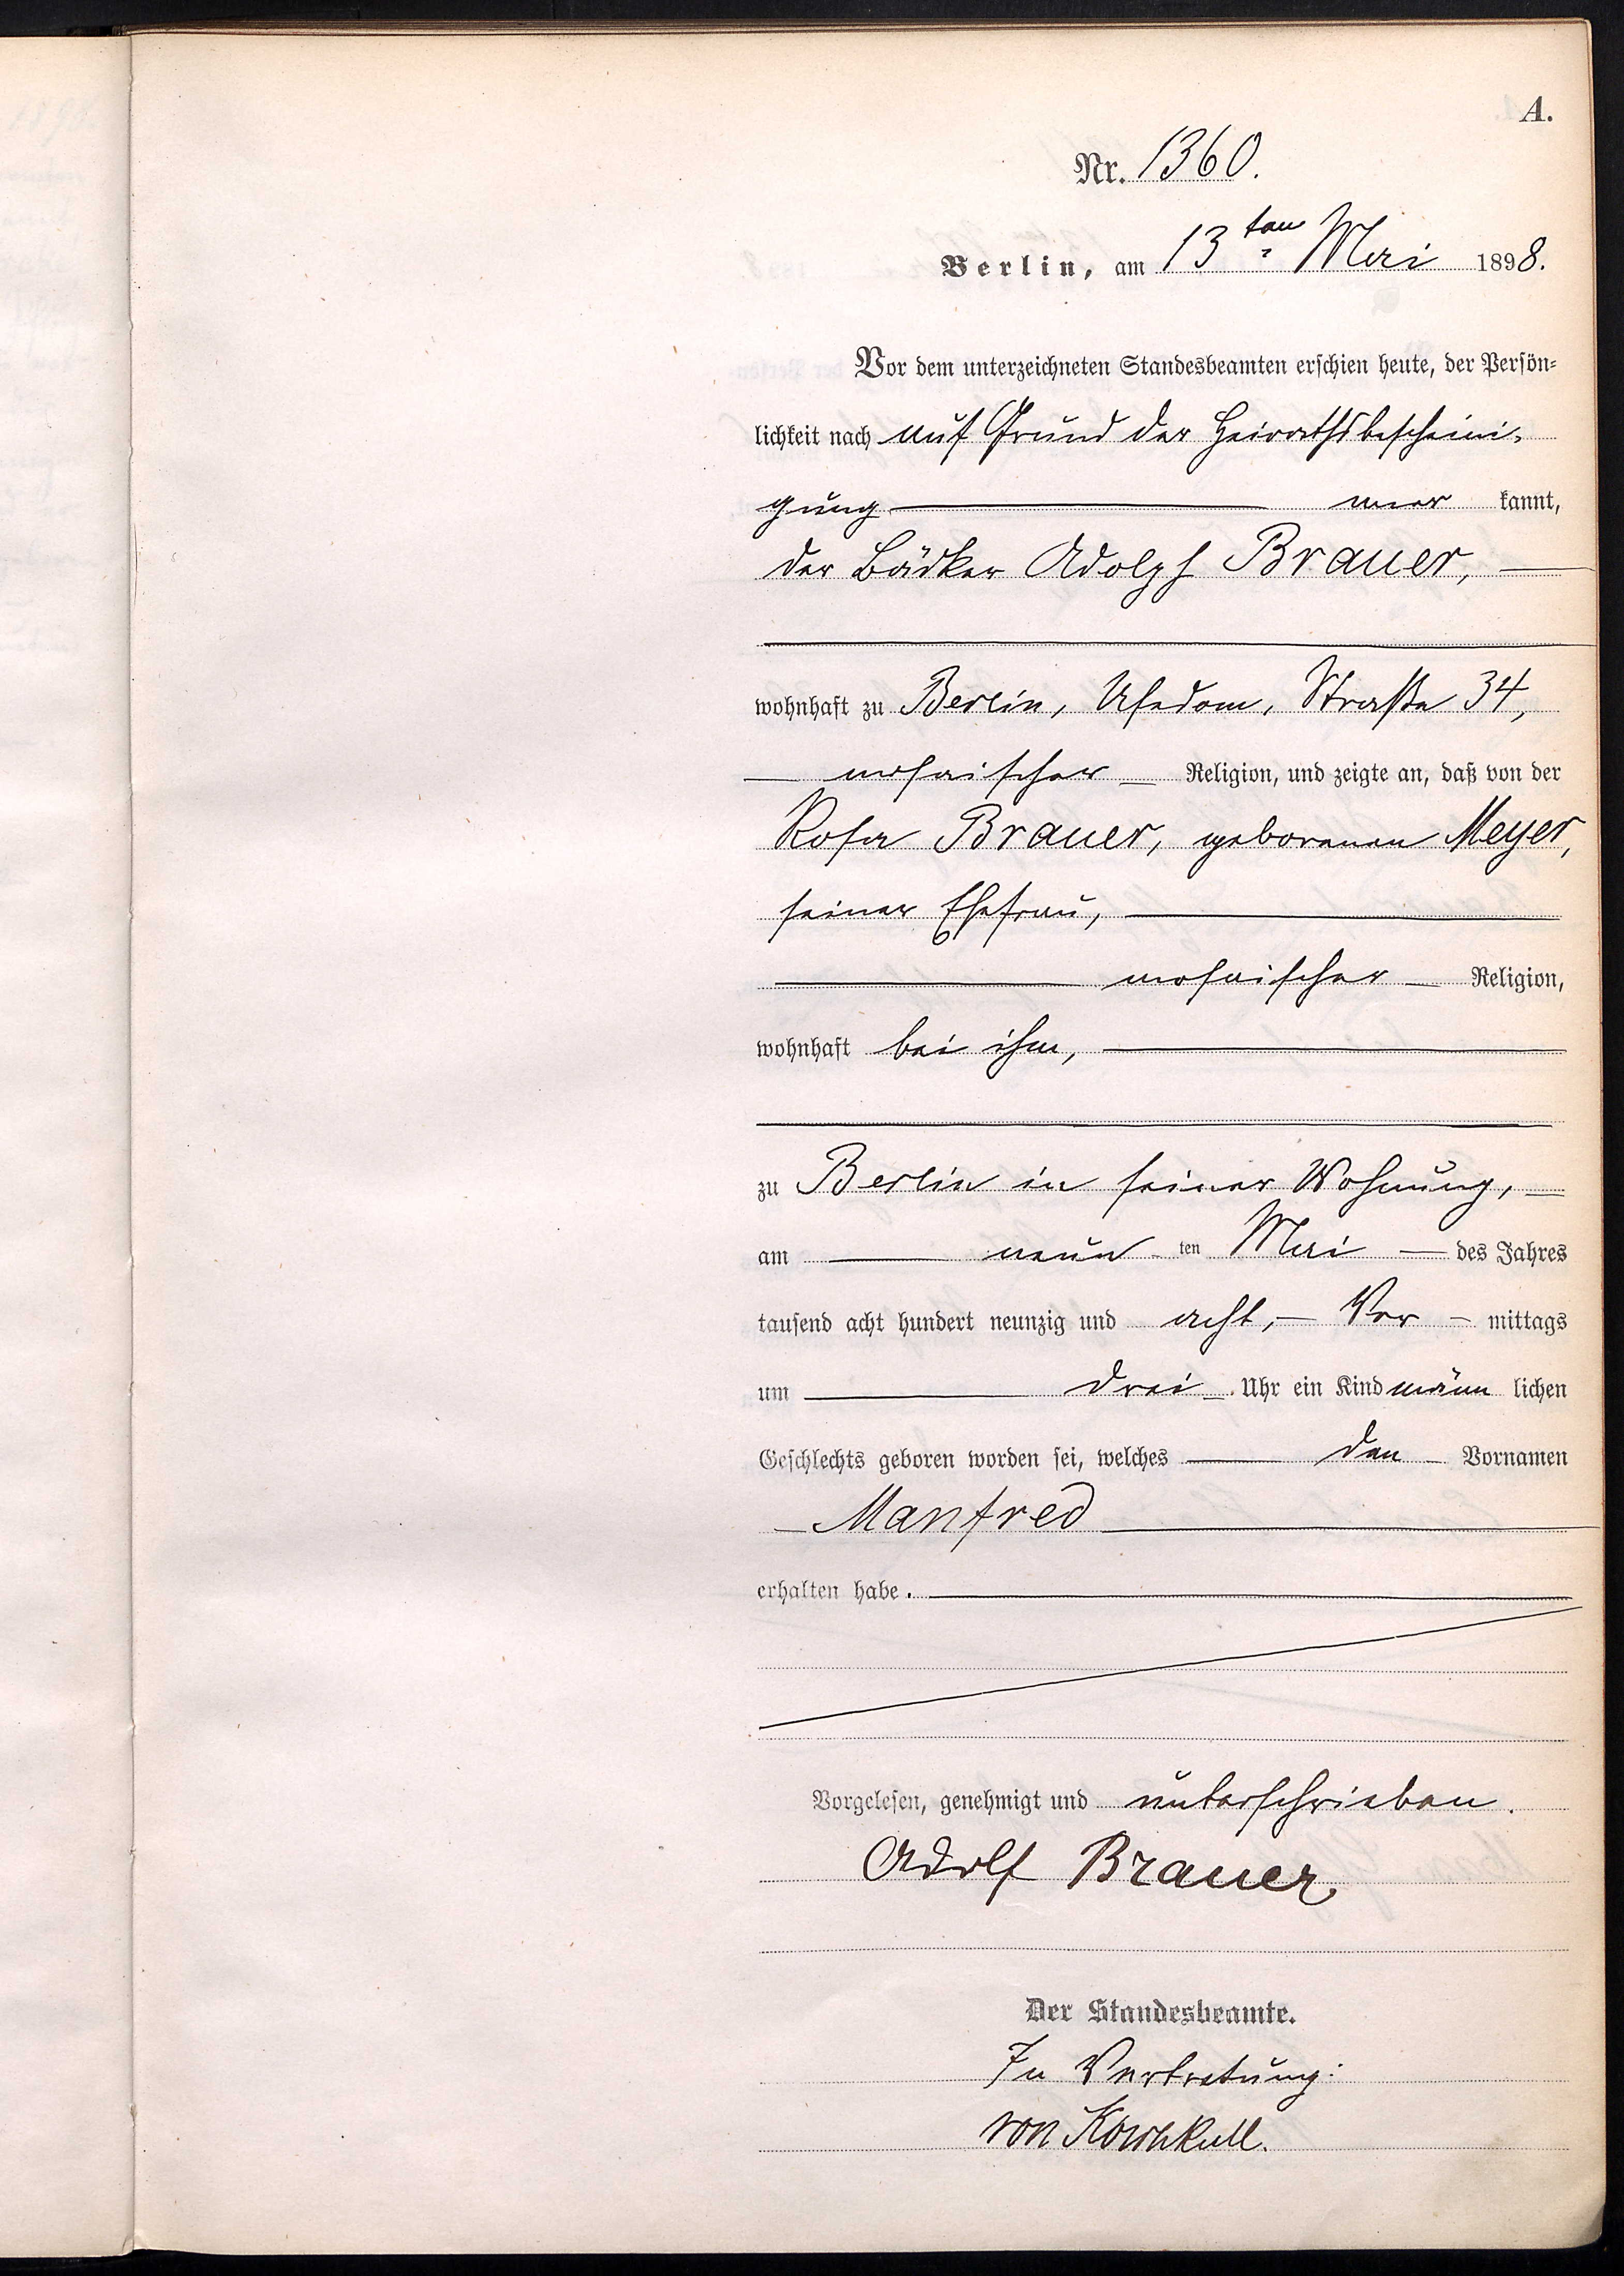 A.
Nr. 1360.
Berlin, am 13ten Mai 1898.
Vor dem unterzeichneten Standesbeamten erschien heute, der Persön-
lichkeit nach auf Grund der Heirathsbescheini-
gung aner kannt,
der Bäcker Adolph Brauer,
wohnhaft zu Berlin, Usedom, Straße 34,
mosaischer Religion, und zeigte an, daß von der
Rosa Brauer, geborenen Meyer,
seiner Ehefrau,
mosaischer Religion,
wohnhaft bei ihm,
zu Berlin in seiner Wohnung,
am neun ten Mai des Jahres
tausend acht hundert neunzig und acht, Vor mittags
um drei Uhr ein Kind männ lichen
Geschlechts geboren worden sei, welches den Vornamen
Manfred
erhalten habe.
Vorgelesen, genehmigt und unterschrieben.
Adolf Brauer
Der Standesbeamte.
In Vertretung:
von